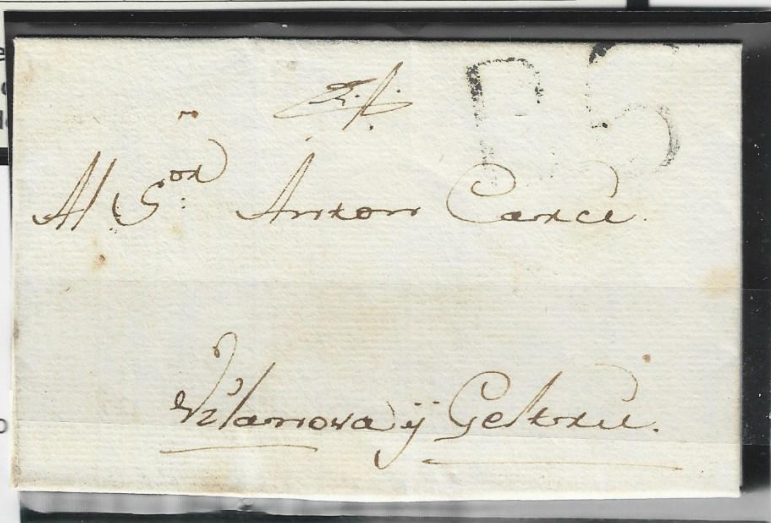 B5
Al S.or Anton Carxer.
Vilanova ÿ Geltru.